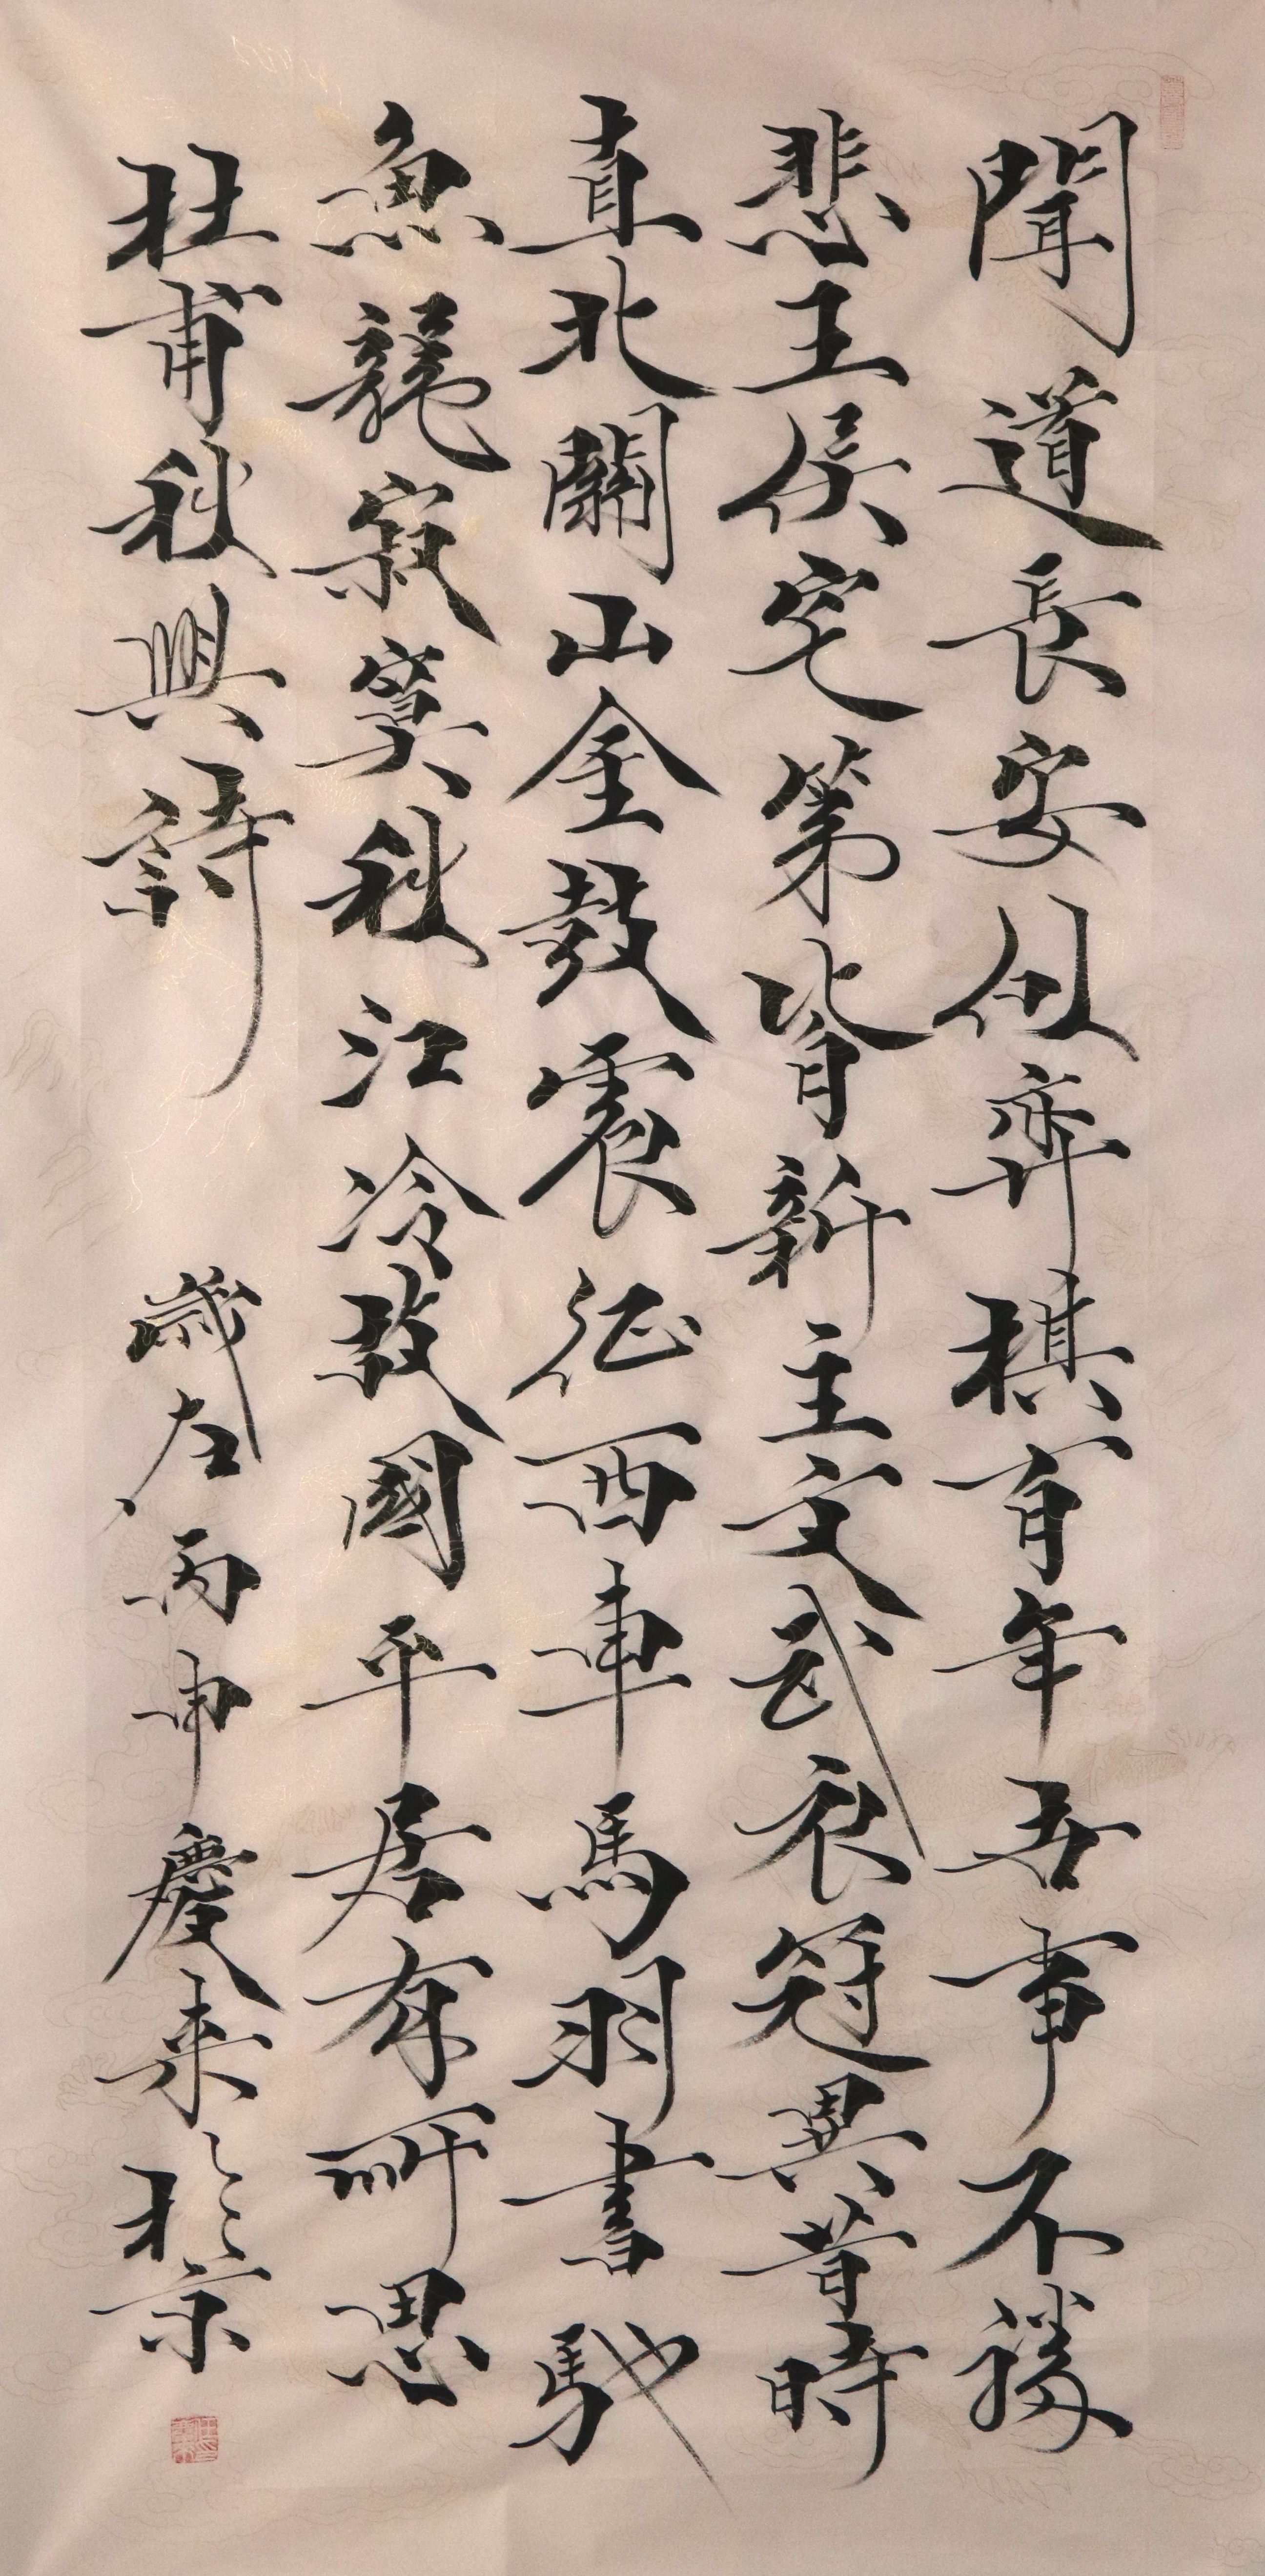 聞道長安似弈棋百年吾事不勝
悲王侯宅第皆新主文武衣冠異昔時
直北關山金鼓震征西車馬羽書馳
魚龍寂寞秋江冷故國平居有所思
杜甫秋興詩 歲在丙申慶来於京